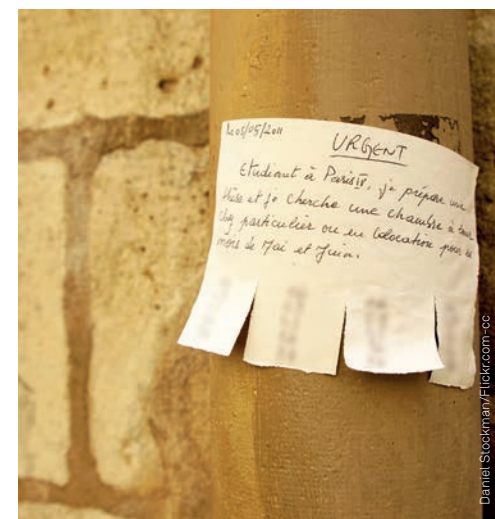 Le 05/05/2011
URGENT
Etudiant à Paris IV, je prépare une
thèse et je cherche une chambre à
chez particulier ou en colocation pour
mois de Mai et Juin.
Daniel Stockman/Flickr.com-cc